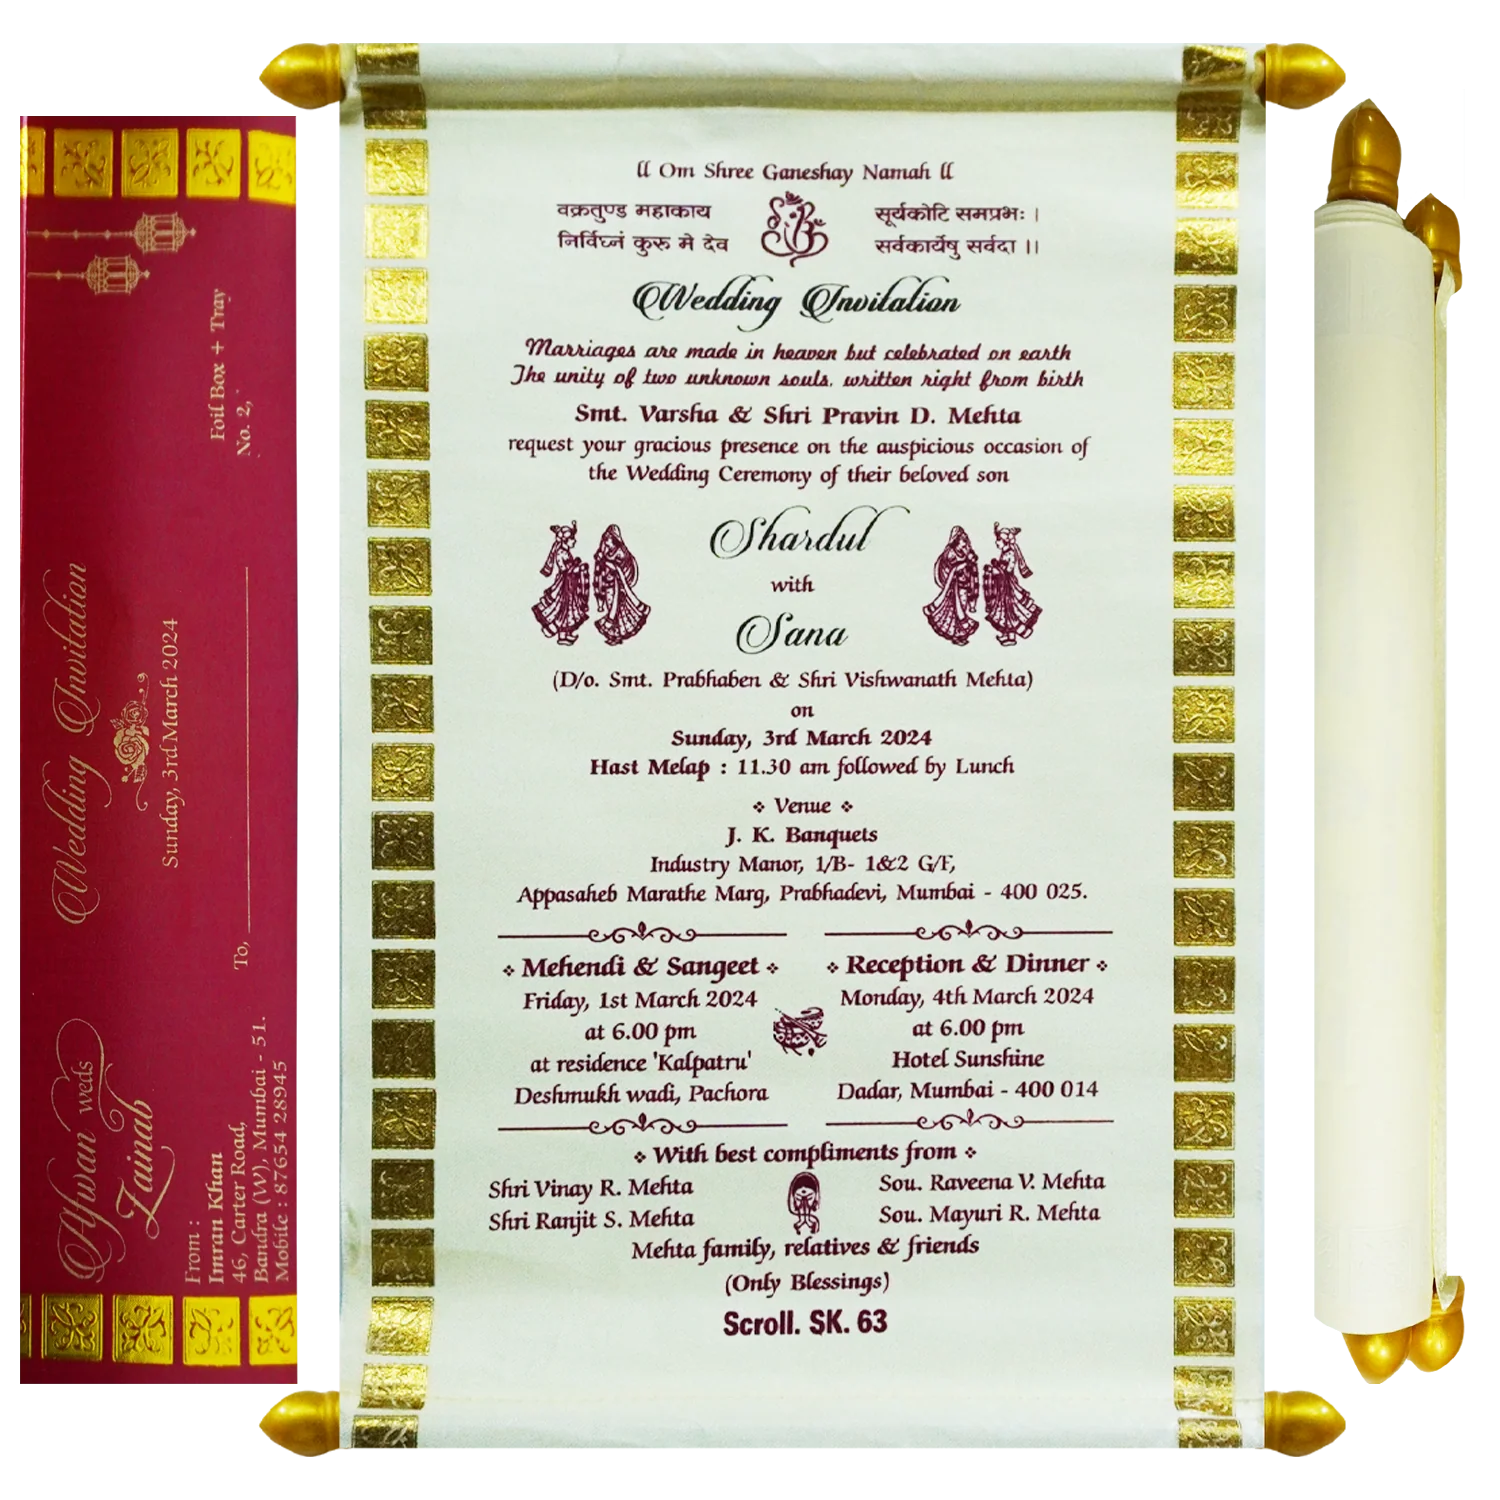 Afwan weds
Zainab
Wedding Invitation
Sunday, 3rd March 2024
From :
Imran Khan
46, Carter Road,
Bandra (W), Mumbai - 51.
Mobile : 87654 28945
To,
Foil Box + Tray
No. 2,
ll Om Shree Ganeshay Namah ll
वक्रतुण्ड महाकाय सूर्यकोटि समप्रभः ।
निर्विघ्नं कुरू मे देव सर्वकार्येषु सर्वदा ।।
Wedding Invitation
Marriages are made in heaven but celebrated on earth
The unity of two unknown souls, written right from birth
Smt. Varsha & Shri Pravin D. Mehta
request your gracious presence on the auspicious occasion of
the Wedding Ceremony of their beloved son
Shardul
with
Sana
(D/o. Smt. Prabhaben & Shri Vishwanath Mehta)
on
Sunday, 3rd March 2024
Hast Melap : 11.30 am followed by Lunch
Venue
J. K. Banquets
Industry Manor, 1/B- 1&2 G/F,
Appasaheb Marathe Marg, Prabhadevi, Mumbai - 400 025.
Mehendi & Sangeet
Friday, 1st March 2024
at 6.00 pm
at residence 'Kalpatru'
Deshmukh wadi, Pachora
Reception & Dinner
Monday, 4th March 2024
at 6.00 pm
Hotel Sunshine
Dadar, Mumbai - 400 014
With best compliments from
Shri Vinay R. Mehta Sou. Raveena V. Mehta
Shri Ranjit S. Mehta Sou. Mayuri R. Mehta
Mehta family, relatives & friends
(Only Blessings)
Scroll. SK. 63